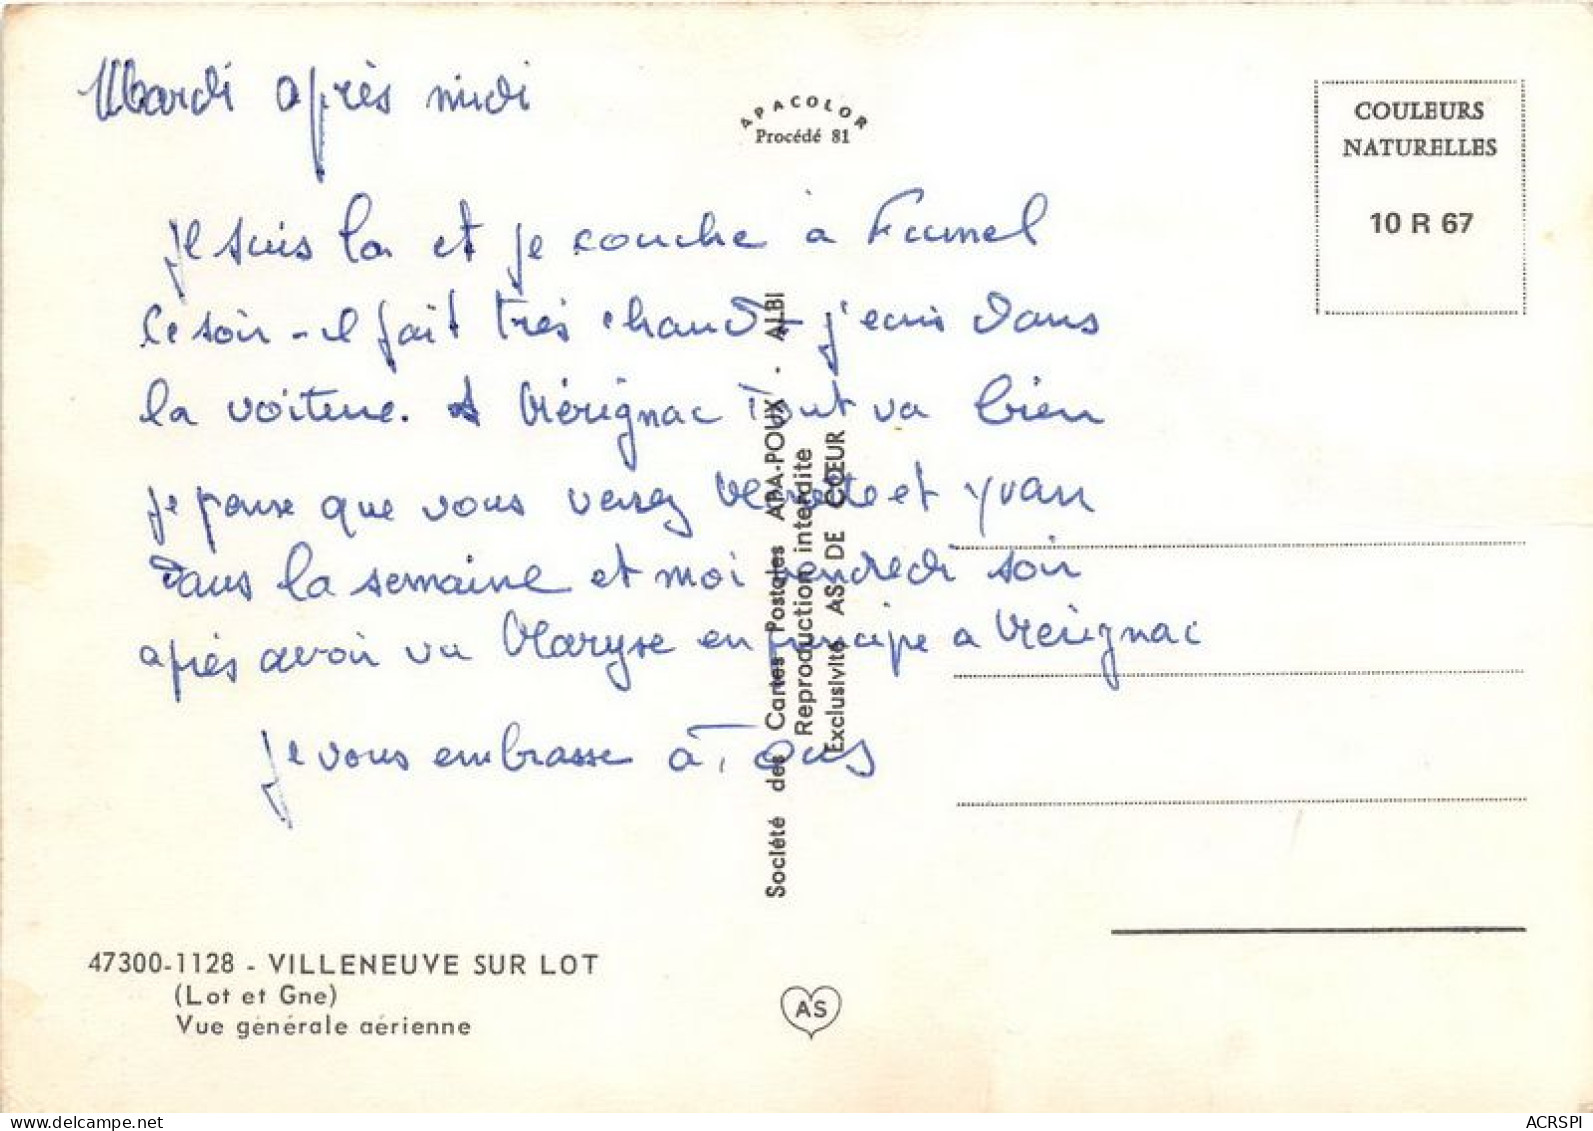 Mardi après midi
APACOLOR
Procédé 81
COULEURS
NATURELLES
10 R 67
Je suis la et je couche à Fumel
ce soir - il fait très chaud - j'ecris dans
la voiture. A Mérignac Tout va bien
je pense que vous verrez et Yvan
dans la semaine et moi vendredi soir
après avoir vu Maryse en principe a Mérignac
Je vous embrasse à Tous
Société des Cartes Postales APA-POUX - ALBI
Reproduction interdite
Exclusivité AS DE CŒUR
47300-1128 - VILLENEUVE SUR LOT
(Lot et Gne)
Vue générale aérienne
AS
www.delcampe.net
ACRSPI